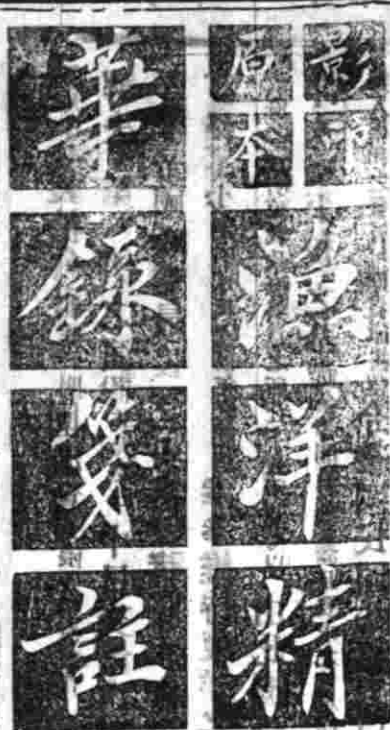 影印
原本
漁洋精
華錄箋註